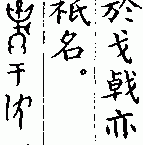 於戈戟亦
祇名。
干